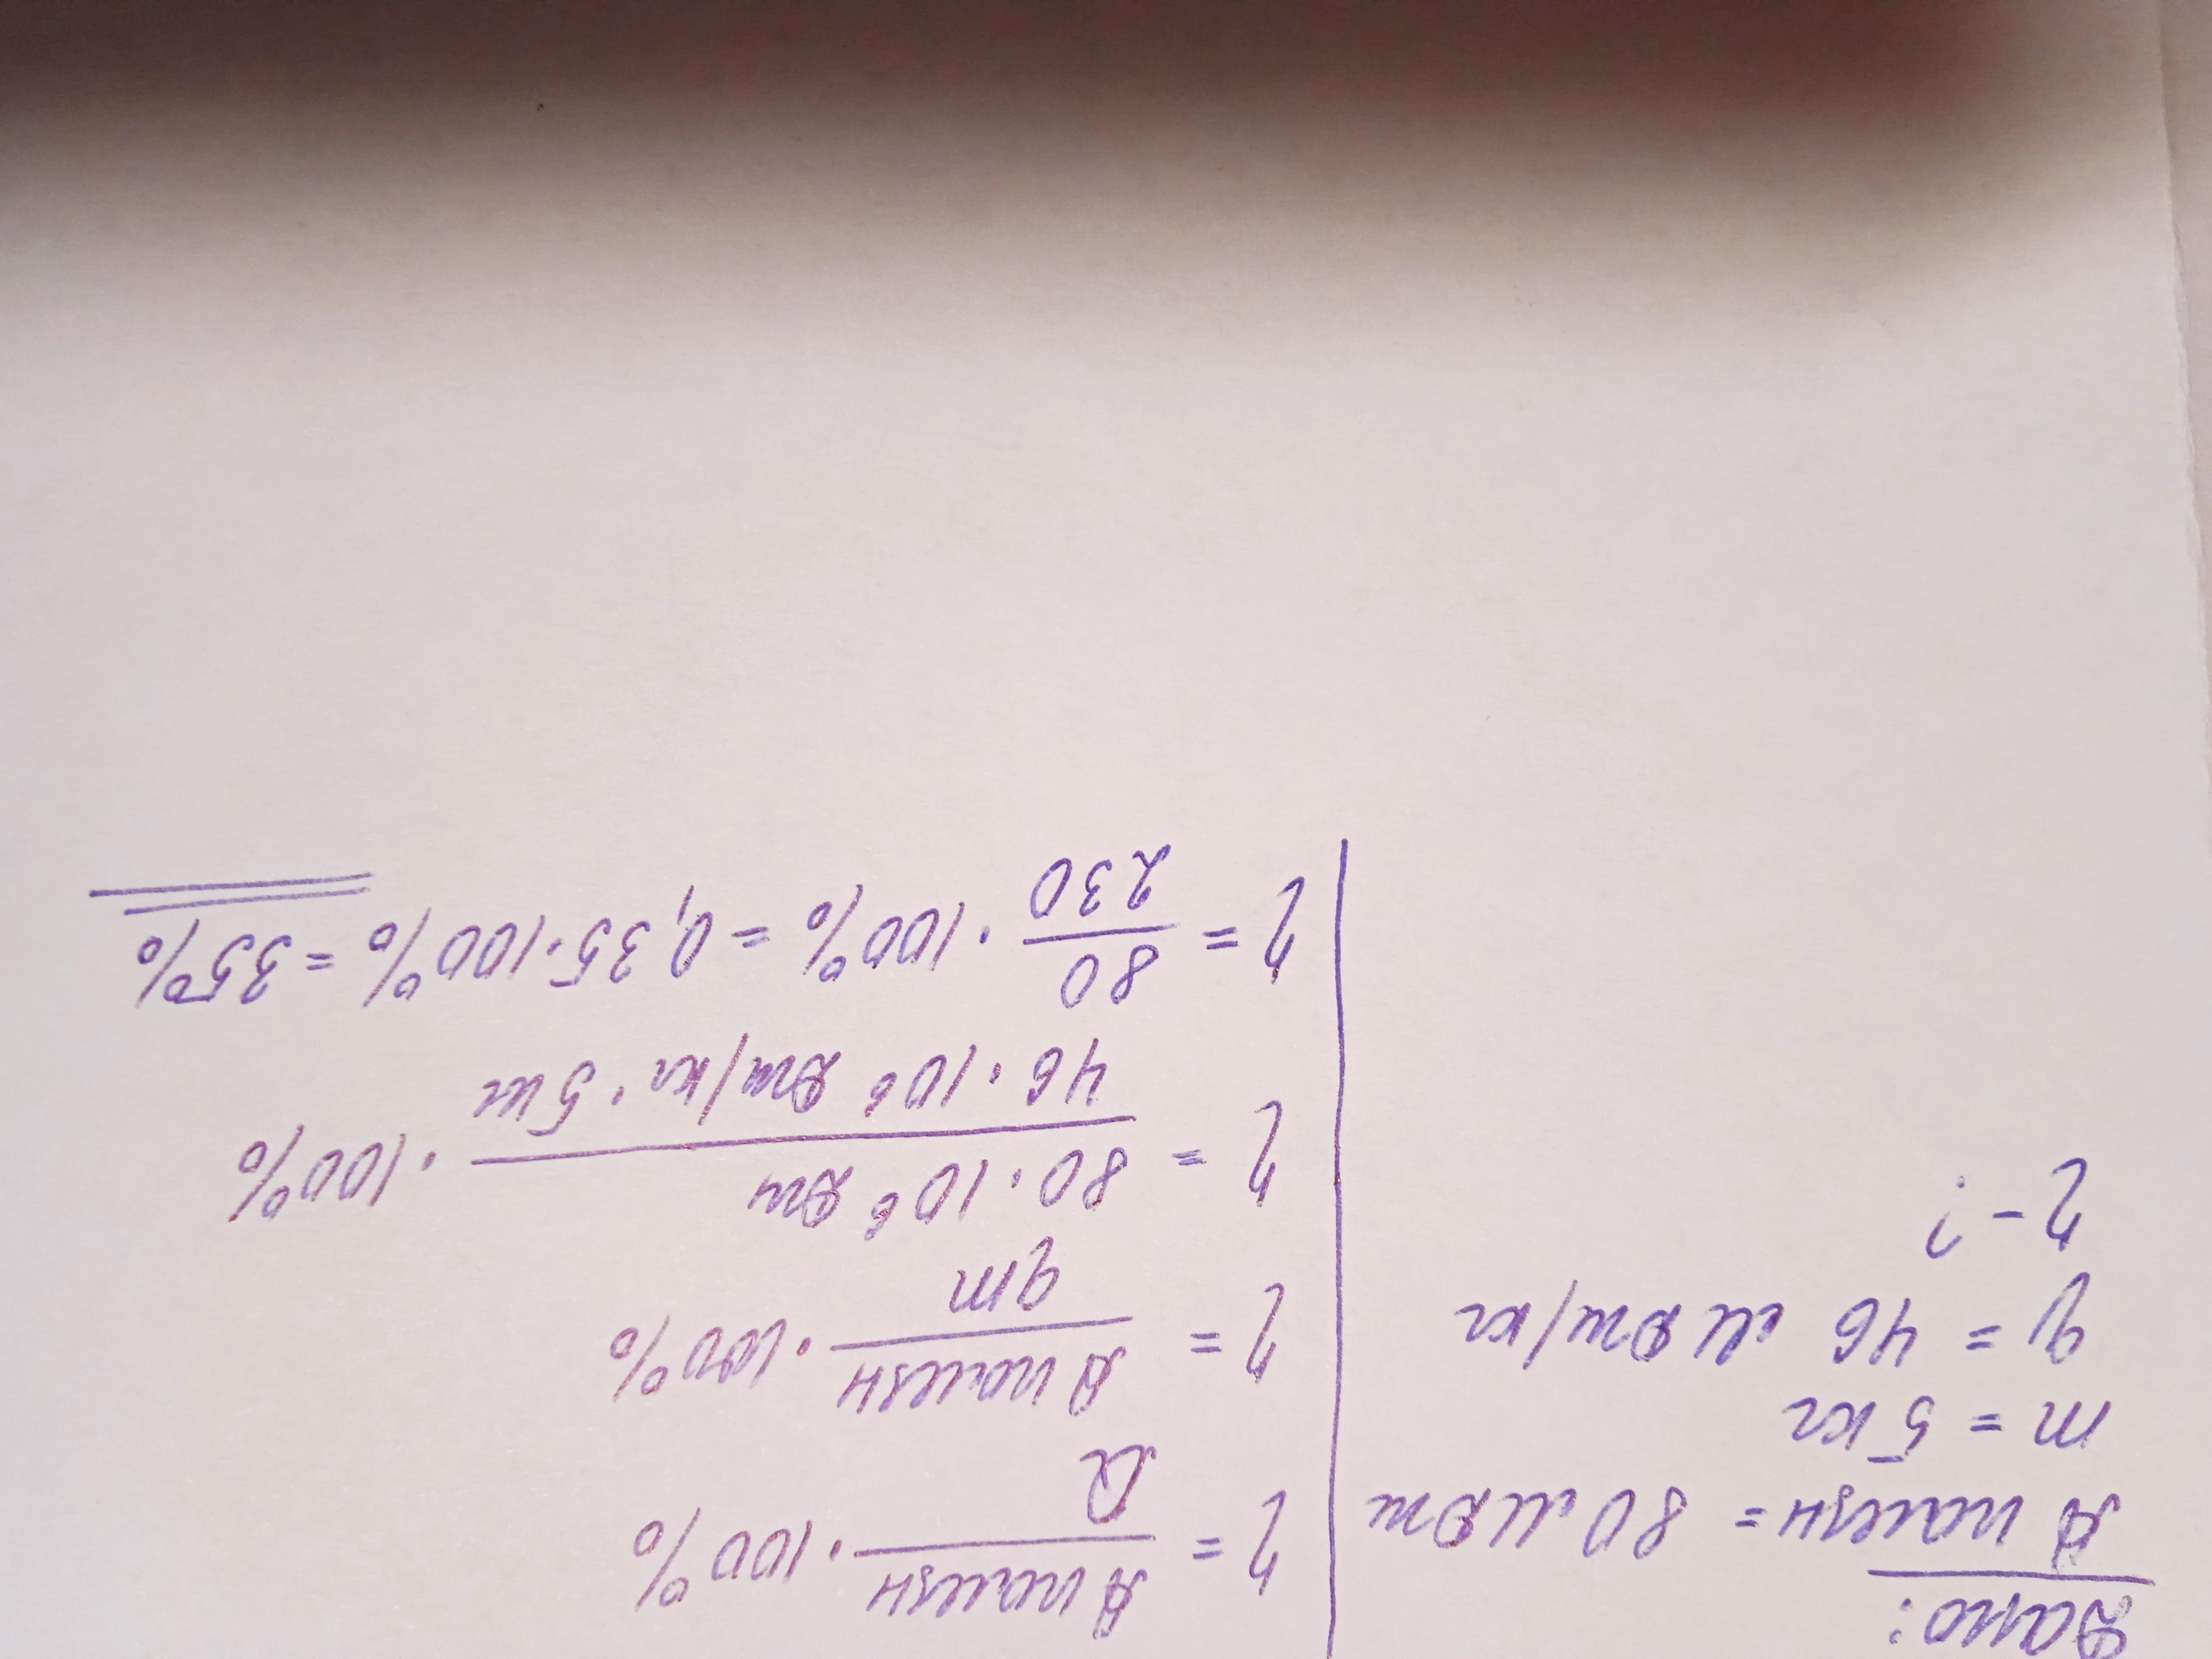 Дано:
А полезн = 80 МДж
m = 5 кг
q = 46 МДж/кг
η - ?
η = А полезн / Q · 100%
η = А полезн / qm · 100%
η = 80 · 10⁶ Дж / 46 · 10⁶ Дж/кг · 5 кг · 100%
η = 80 / 230 · 100% = 0,35 · 100% = 35%